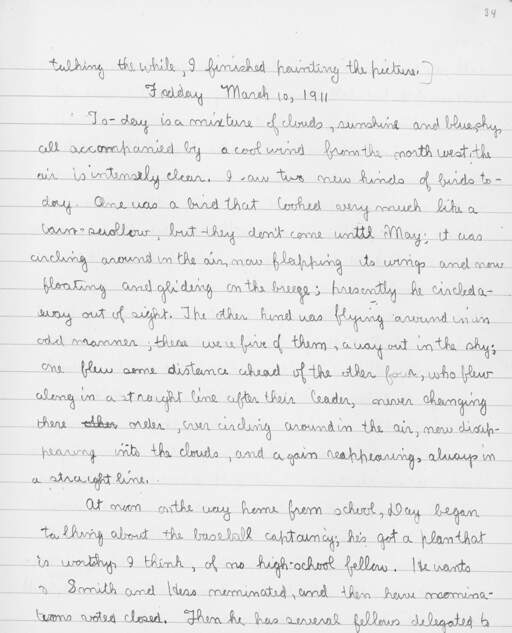 34
talking the while, I finished painting the picture.]
Friday March 10, 1911
To-day is a mixture of clouds, sunshine and blue sky,
all accompanied by a cool wind from the north west; the
air is intensely clear. I saw two new kinds of birds to-
day. One was a bird that looked very much like a
barn-swallow, but they don't come until May; it was
circling around in the air, now flapping its wings and now
floating and gliding on the breeze; presently he circled a-
way out of sight. The other kind was flying around in an
odd manner; there were five of them, away out in the sky;
one flew some distance ahead of the other four, who flew
along in a straight line after their leader, never changing
there other order, ever circling around in the air, now disap-
pearing into the clouds, and again reappearing, always in
a straight line.
At noon on the way home from school, Day began
talking about the baseball captaincy; he's got a plan that
is worthy, I think, of no high-school fellow. He wants
Smith and Hess nominated, and then have nomina-
tions voted closed. Then he has several fellows delegated to